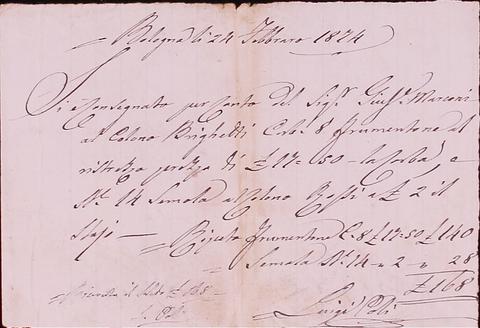 Bologna li 24 Febbraro 1874
Si è consegnato per conto del Sigr. Giusp. Marconi
al Colono Brighetti Corbe 8 Frumentone al
ristretto prezzo di £ 17=50 la Corba, e
N. 14 Semola al Colono Rossi a £ 2 il
Stajo — Frumentone C. 8 £ 17=50 £ 140
Semola N. 14 " 2 " 28
£ 168
£ 168
Luigi Poli